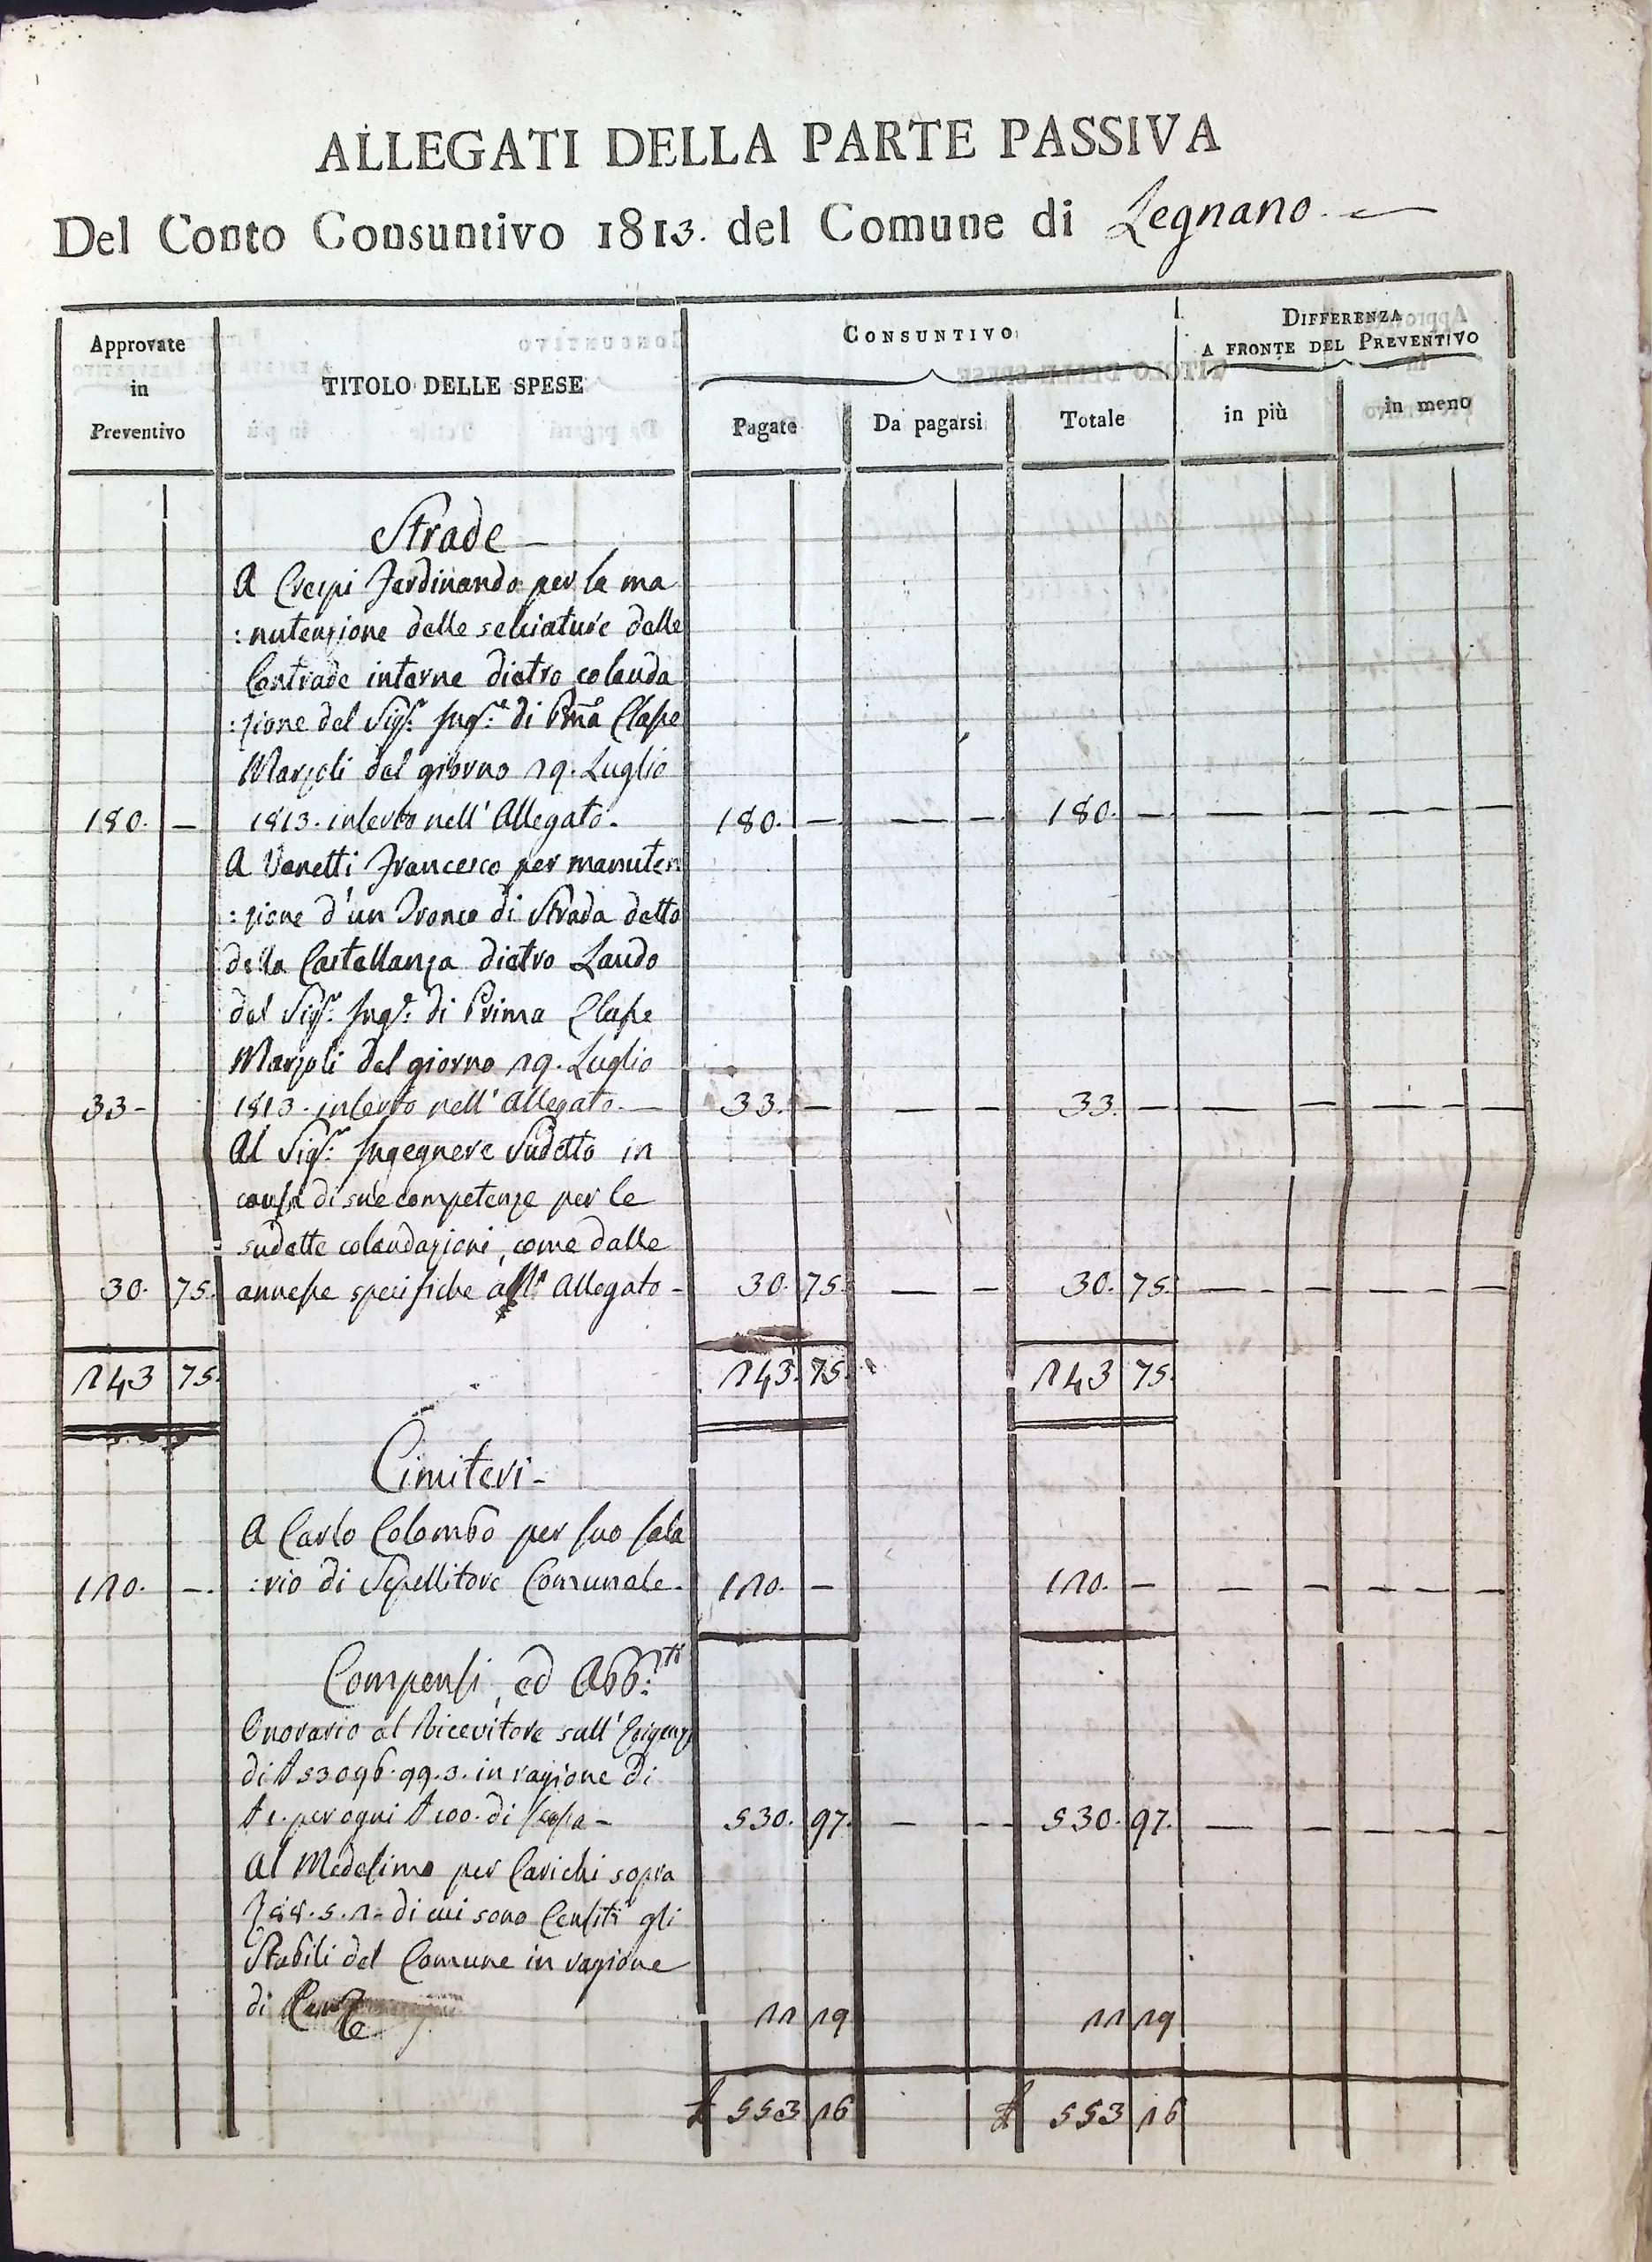 ALLEGATI DELLA PARTE PASSIVA
Del Conto Consuntivo 1813. del Comune di Legnano.
Approvate in Preventivo
TITOLO DELLE SPESE
CONSUNTIVO
Pagate
Da pagarsi
Totale
DIFFERENZA
A FRONTE DEL PREVENTIVO
in più
in meno
Strade –
A Crespi Ferdinando per la ma
:nutenzione delle selciature delle
Contrade interne dietro colauda
:zione del Sigr. Ingre. di Pma Classe
Marzoli del giorno 19. Luglio
180. — 1813. inserto nell' Allegato. 180. — — — 180. — — — — —
A Vanetti Francesco per manuten
:zione d'un Tronco di Strada detto
della Castellanza dietro Laudo
del Sigr. Ingr. di Prima Classe
Marzoli del giorno 19. Luglio
33 – 1813. inserto nell' Allegato. — 33. — — — 33. — — — — —
Al Sigr. Ingegnere Sudetto in
causa di sue competenze per le
sudette colaudazioni, come dalle
30. 75. annesse specifiche Allegato – 30. 75. — — 30. 75. — — — —
143 75. 143. 75. 143 75.
Cimiteri –
A Carlo Colombo per suo sala
110. —. :rio di Sepellitore Comunale. 110. — 110. — — — — —
Compensi, ed Abb:ti
Onorario al Ricevitore sull'
di 53096. 99. 3. in ragione di
1. per ogni 100. di scossa – 530. 97. — — 530. 97. — — — —
Al Medesimo per Carichi sopra
di cui sono Censiti gli
Stabili del Comune in ragione
di 11 19 11 19
553 16 553 16